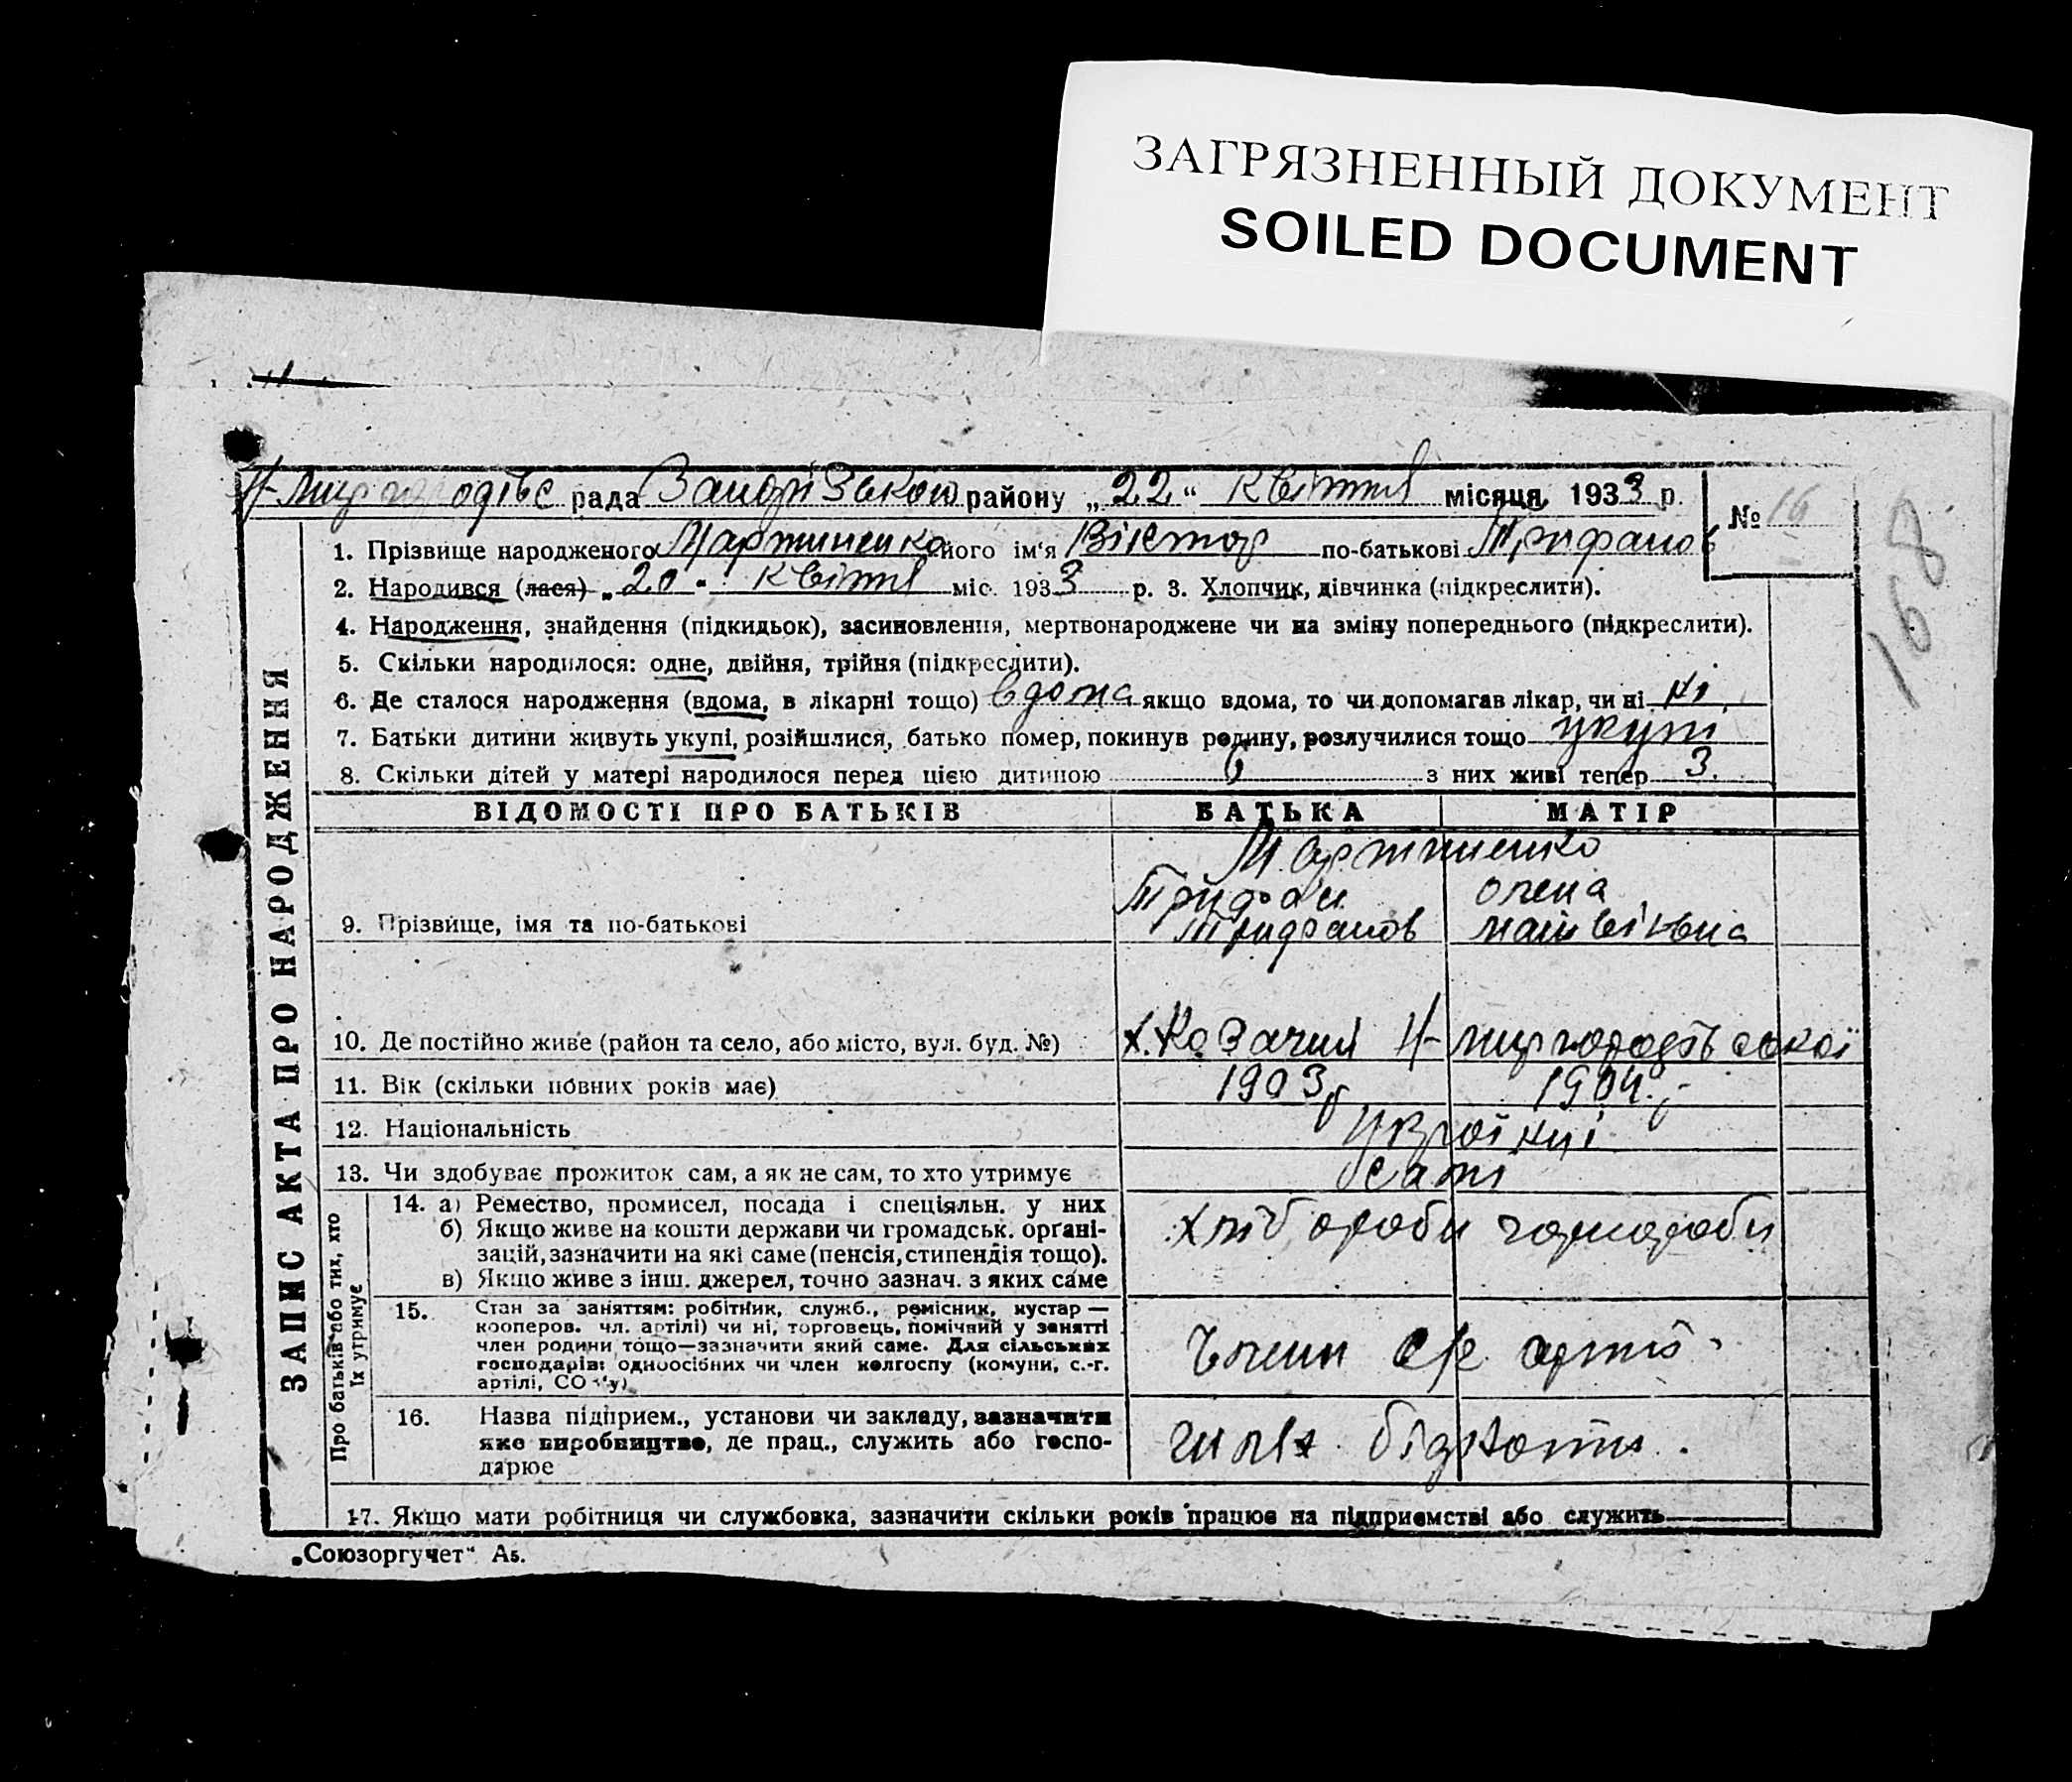 ЗАГРЯЗНЕННЫЙ ДОКУМЕНТ
SOILED DOCUMENT
рада району „22“ квітня місяця 1933 р. № 16
168
ЗАПИС АКТА ПРО НАРОДЖЕННЯ
1. Прізвище народженого Мартиненко його ім‘я Віктор по-батькові Трифанов
2. Народився (лася) „20“ квітня міс. 1933 р. 3. Хлопчик, дівчинка (підкреслити).
4. Народження, знайдення (підкидьок), засиновлення, мертвонароджене чи на зміну попереднього (підкреслити).
5. Скільки народилося: одне, двійня, трійня (підкреслити).
6. Де сталося народження (вдома, в лікарні тощо) вдома якщо вдома, то чи допомагав лікар, чи ні ні.
7. Батьки дитини живуть укупі, розійшлися, батько помер, покинув родину, розлучилися тощо укупі
8. Скільки дітей у матері народилося перед цією дитиною 6 з них живі тепер 3.
ВІДОМОСТІ ПРО БАТЬКІВ БАТЬКА МАТІР
Мартиненко
Трифан олена
9. Прізвище, імя та по-батькові Трифанов матвіївна
10. Де постійно живе (район та село, або місто, вул. буд. №) х. Козачий Н-миргородської
11. Вік (скільки повних років має) 1903р 1904р
12. Національність Украінці
13. Чи здобуває прожиток сам, а як не сам, то хто утримує сами
Про батьків або тих, хто їх утримує
14. а) Ремество, промисел, посада і спеціяльн. у них
б) Якщо живе на кошти держави чи громадськ. орґані-
зацій, зазначити на які саме (пенсія, стипендія тощо).
в) Якщо живе з інш. джерел, точно зазнач. з яких саме
хлібороби чорнороби
15. Стан за заняттям: робітник, служб., ремісник, кустар —
кооперов. чл. артілі) чи ні, торговець, помічний у занятті
член родини тощо—зазначити який саме. Для сільських
господарів: одноосібних чи член колгоспу (комуни, с.-г.
артілі, СО у)
Члени с/г артілі
16. Назва підприєм., установи чи закладу, зазначити
яке виробництво, де прац., служить або госпо-
дарює
шлях бідноти.
17. Якщо мати робітниця чи службовка, зазначити скільки років працює на підприємстві або служить
„Союзоргучет“ А5.